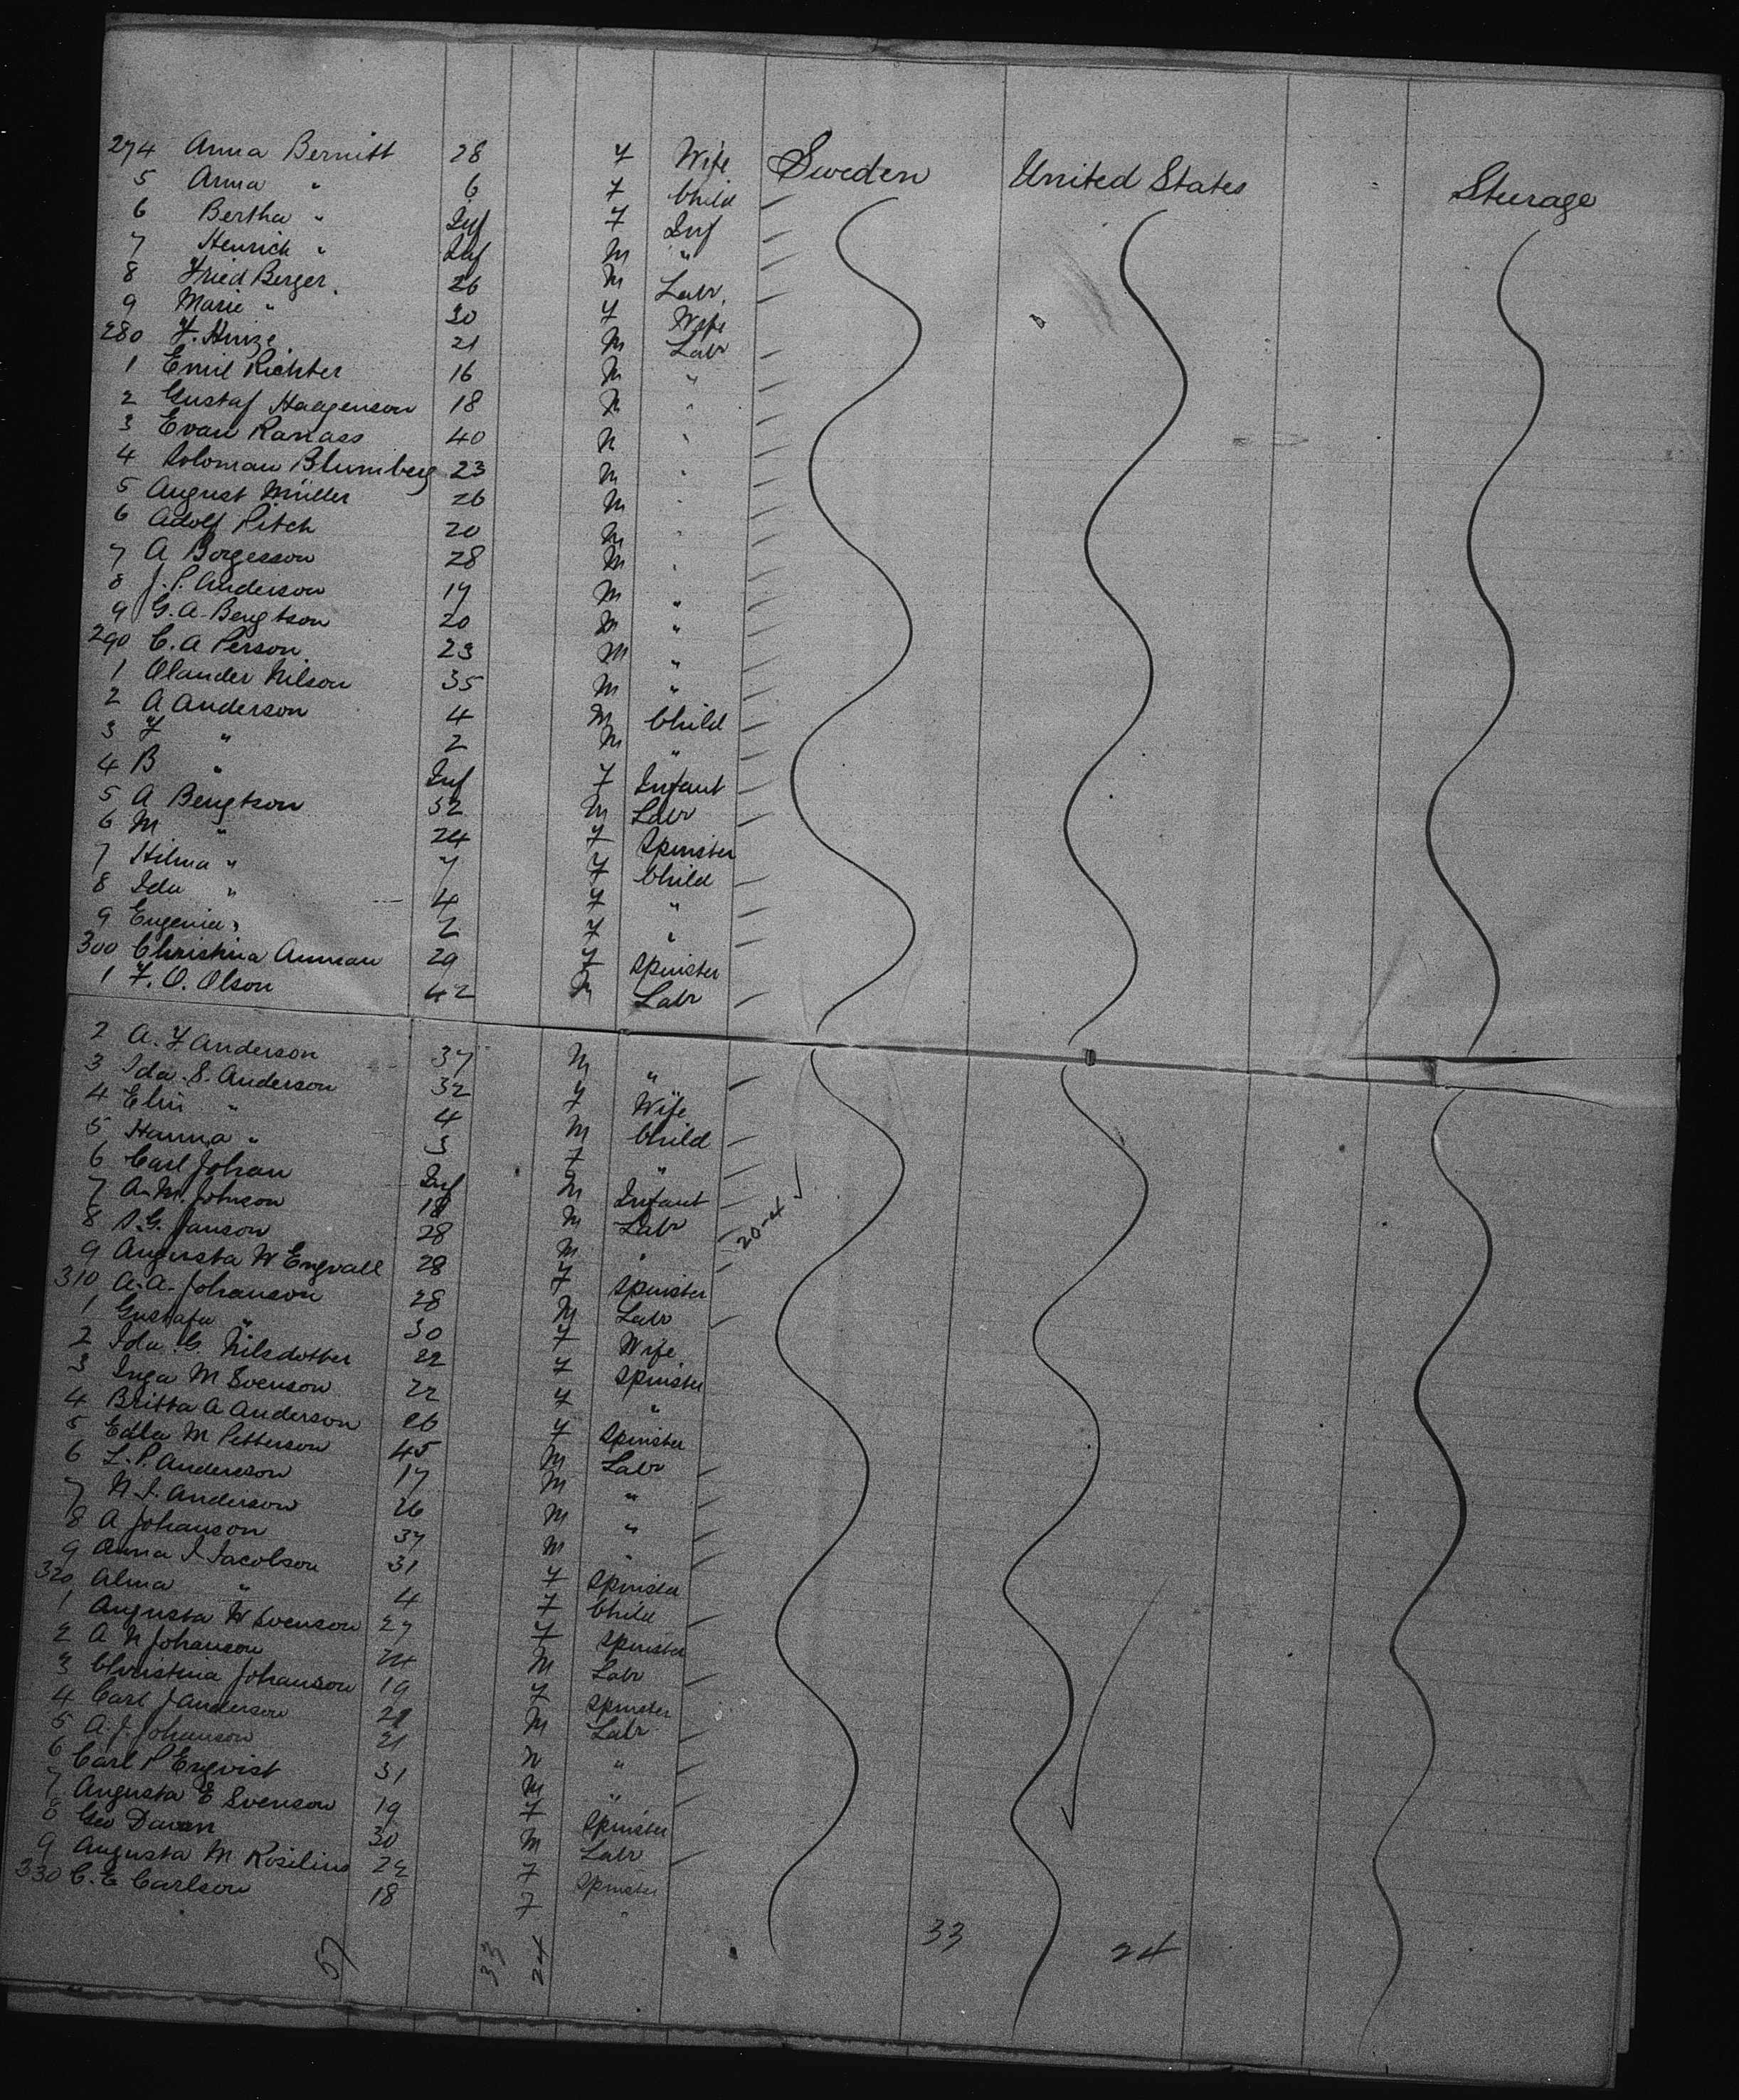 274 Anna Bernitt 28 F Wife Sweden United States Steerage
5 Anna " 6 F Child
6 Bertha " Inf F Inf
7 Henrich " Inf M "
8 Fried Berger 26 M Labr
9 Marie " 20 F Wife
280 F. Hinze 21 M Labr
1 Emil Richter 16 M "
2 Gustaf Haagenson 18 M "
3 Evan Ranass 40 M "
4 Soloman Blumberg 23 M "
5 August Müller 26 M "
6 Adolf Pitch 20 M "
7 A Borgesson 28 M "
8 J. P. Anderson 17 M "
9 G. A. Bengtson 20 M "
290 C. A Person 23 M "
1 Olander Nilson 35 M "
2 A Anderson 4 M Child
3 F " 2 M "
4 B " Inf F Infant
5 A Bengtson 32 M Labr
6 M " 24 F Spinster
7 Hilma " 7 F Child
8 Ida " 4 F "
9 Eugenia " 2 F "
300 Christina Annman 29 F Spinster
1 F. O. Olson 42 M Labr
2 A. F Anderson 37 M "
3 Ida. S. Anderson 32 F Wife
4 Elin " 4 M Child
5 Hanna " 3 F "
6 Carl Johan Inf M Infant
7 A. M. Johnson 18 M Labr 20-4
8 S. G. Janson 28 M "
9 Augusta W Engvall 28 F Spinster
310 A. A. Johanson 28 M Labr
1 Gustafa " 30 F Wife
2 Ida. G. Nilsdotter 22 F Spinster
3 Inga M Svenson 22 F "
4 Britta A Anderson 26 F Spinster
5 Edla M Petterson 45 M Labr
6 L. P. Anderson 17 M "
7 N. I. Anderson 26 M "
8 A Johanson 37 M "
9 Anna I Jacobson 31 F Spinster
320 Alma " 4 F Child
1 Augusta W Svenson 27 F Spinster
2 A N Johanson 24 M Labr
3 Christina Johanson 19 F Spinster
4 Carl J Anderson 28 M Labr
5 A. J. Johanson 21 M "
6 Carl P Enqvist 31 M "
7 Augusta E Svenson 19 F Spinster
8 Geo Davan 30 M Labr
9 Augusta M Rosilius 22 F Spinster
330 C. E Carlson 18 F "
57 33 24 33 24